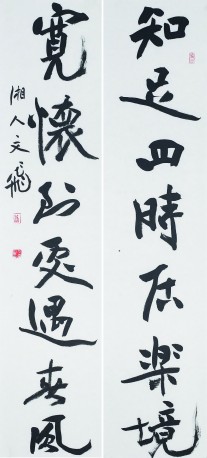 知足四時居樂境
寬懷到處遇春風
湘人文飛